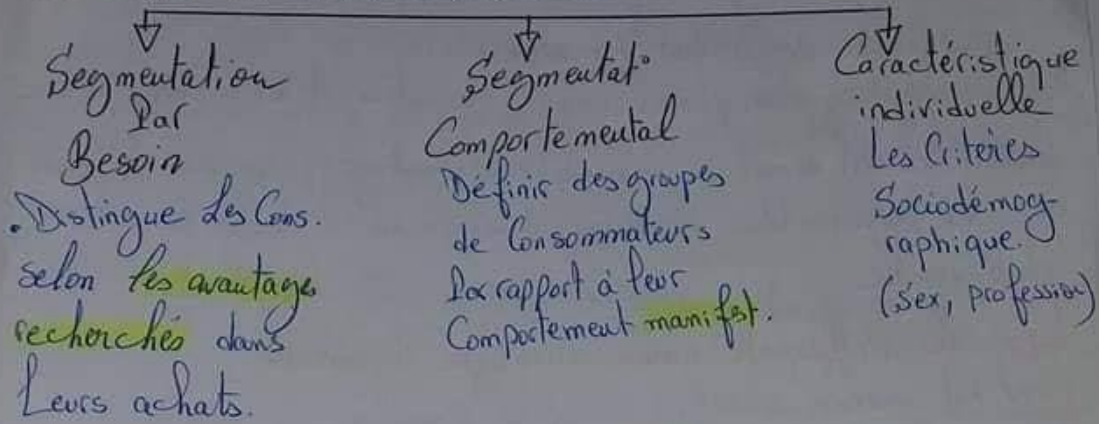 Segmentation
Par
Besoin
. Distingue des Cons.
selon les avantages
recherchés dans
Leurs achats.
Segmentat°
Comportemental
Définir des groupes
de Consommateurs
Par rapport à leur
Comportement manifest.
Caractéristique
individuelle
Les Critères
Sociodémog-
raphique.
(sex, profession)